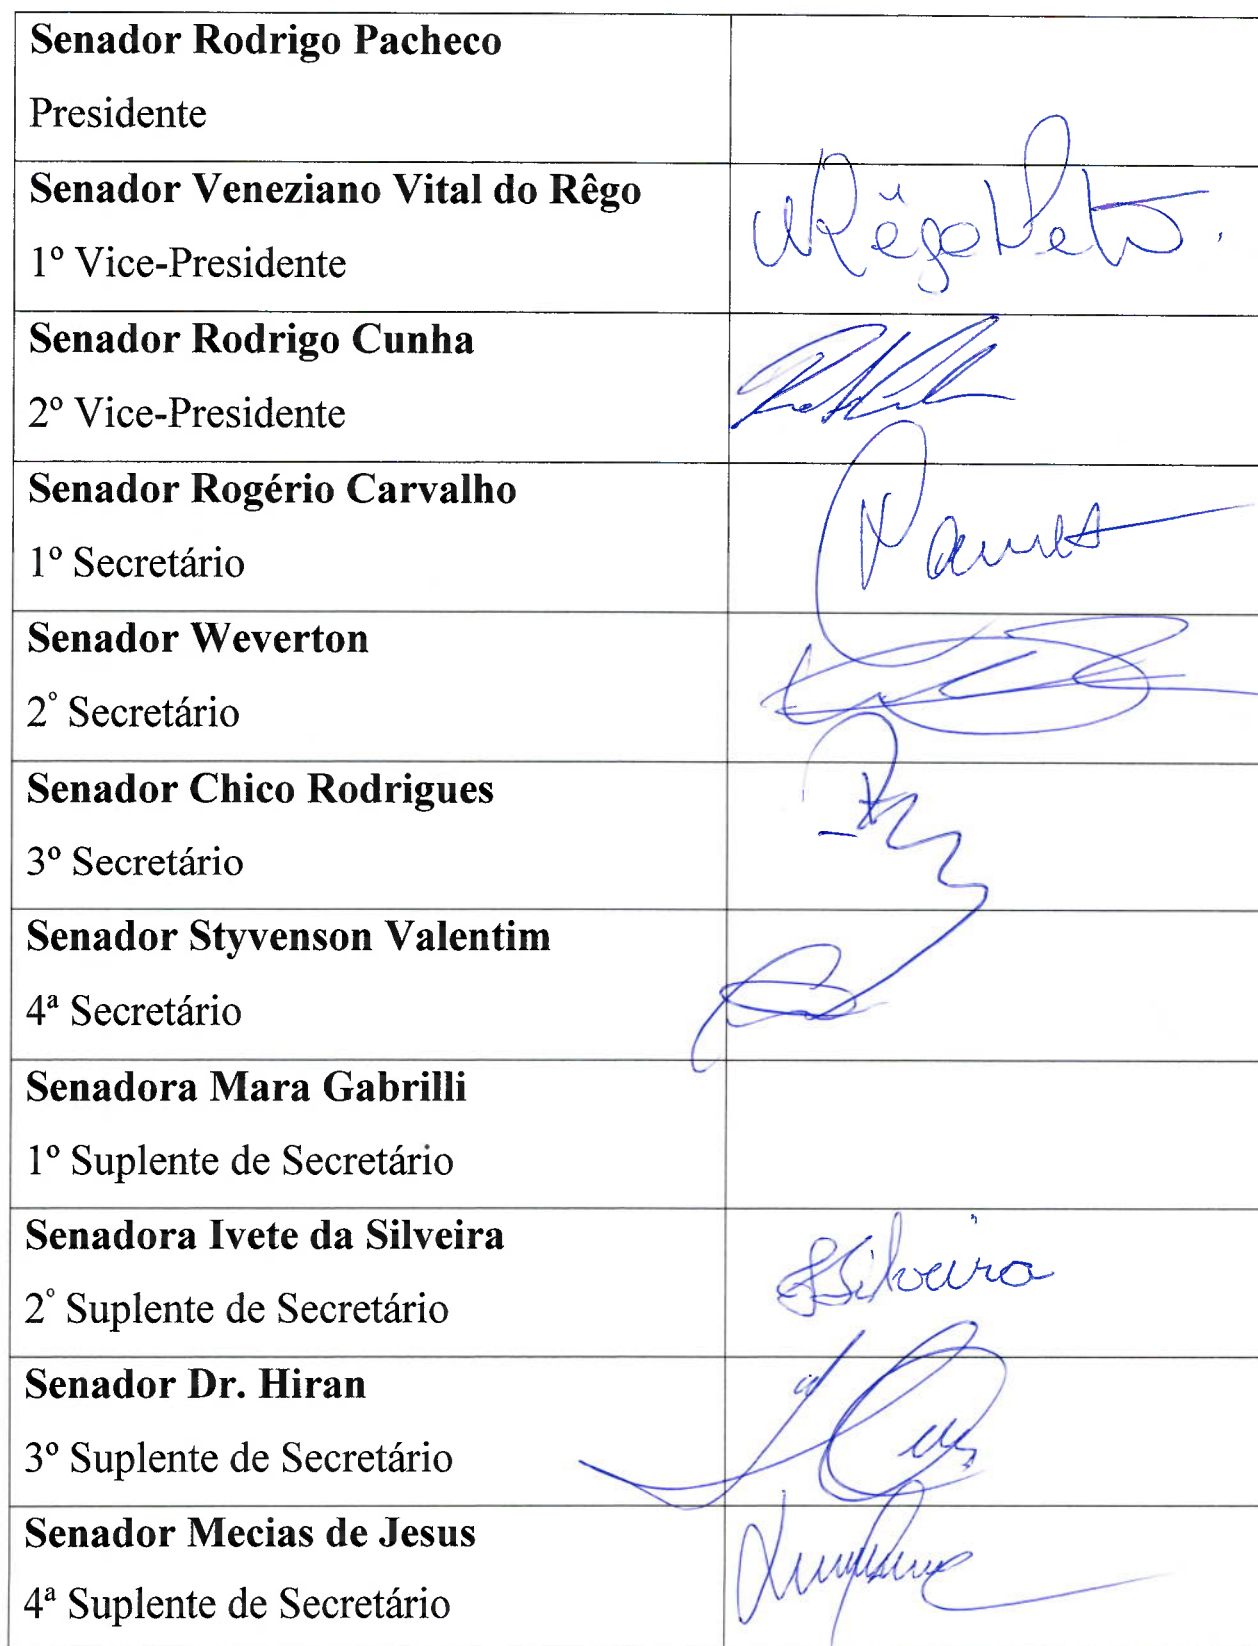 Senador Rodrigo Pacheco
Presidente
Senador Veneziano Vital do Rêgo
1º Vice-Presidente
Rêgo Neto.
Senador Rodrigo Cunha
2º Vice-Presidente
Senador Rogério Carvalho
1º Secretário
Senador Weverton
2º Secretário
Senador Chico Rodrigues
3º Secretário
Senador Styvenson Valentim
4ª Secretário
Senadora Mara Gabrilli
1º Suplente de Secretário
Senadora Ivete da Silveira
2º Suplente de Secretário
Silveira
Senador Dr. Hiran
3º Suplente de Secretário
Senador Mecias de Jesus
4ª Suplente de Secretário